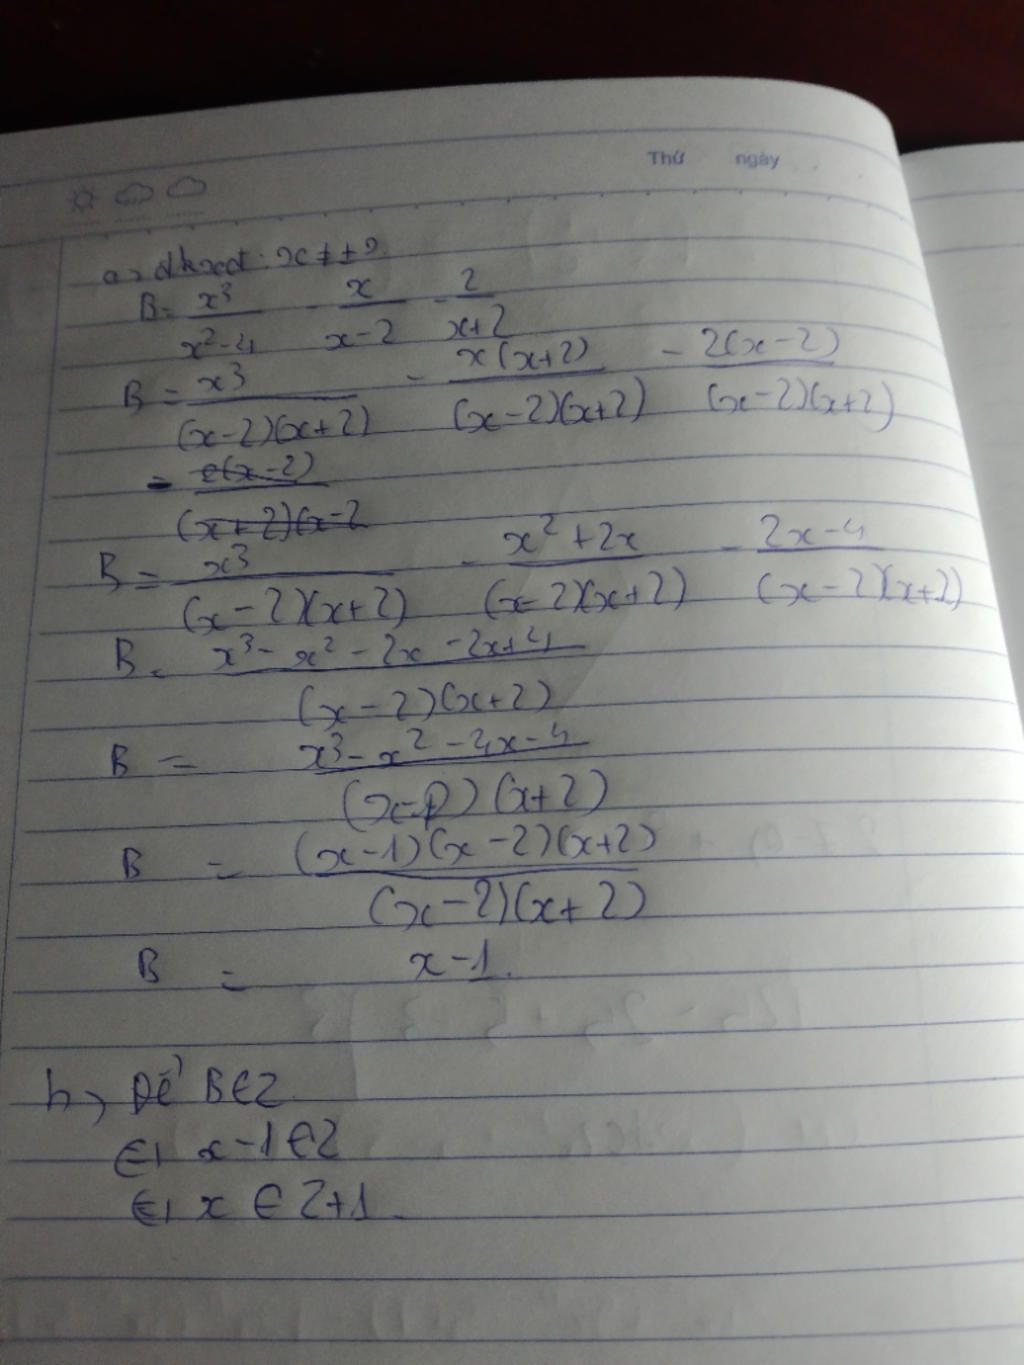 Thứ ngày
a, đkxđ: x ≠ ±2.
B = x³/(x²-4) - x/(x-2) - 2/(x+2)
B = x³/((x-2)(x+2)) - x(x+2)/((x-2)(x+2)) - 2(x-2)/((x-2)(x+2))
= 2(x-2)/((x+2)(x-2
B = x³/((x-2)(x+2)) - (x²+2x)/((x-2)(x+2)) - (2x-4)/((x-2)(x+2))
B = (x³-x²-2x-2x+4)/((x-2)(x+2))
B = (x³-x²-4x-4)/((x-2)(x+2))
B = (x-1)(x-2)(x+2)/((x-2)(x+2))
B = x-1.
b, Để B∈Z
x-1∈Z
x ∈ Z+1.